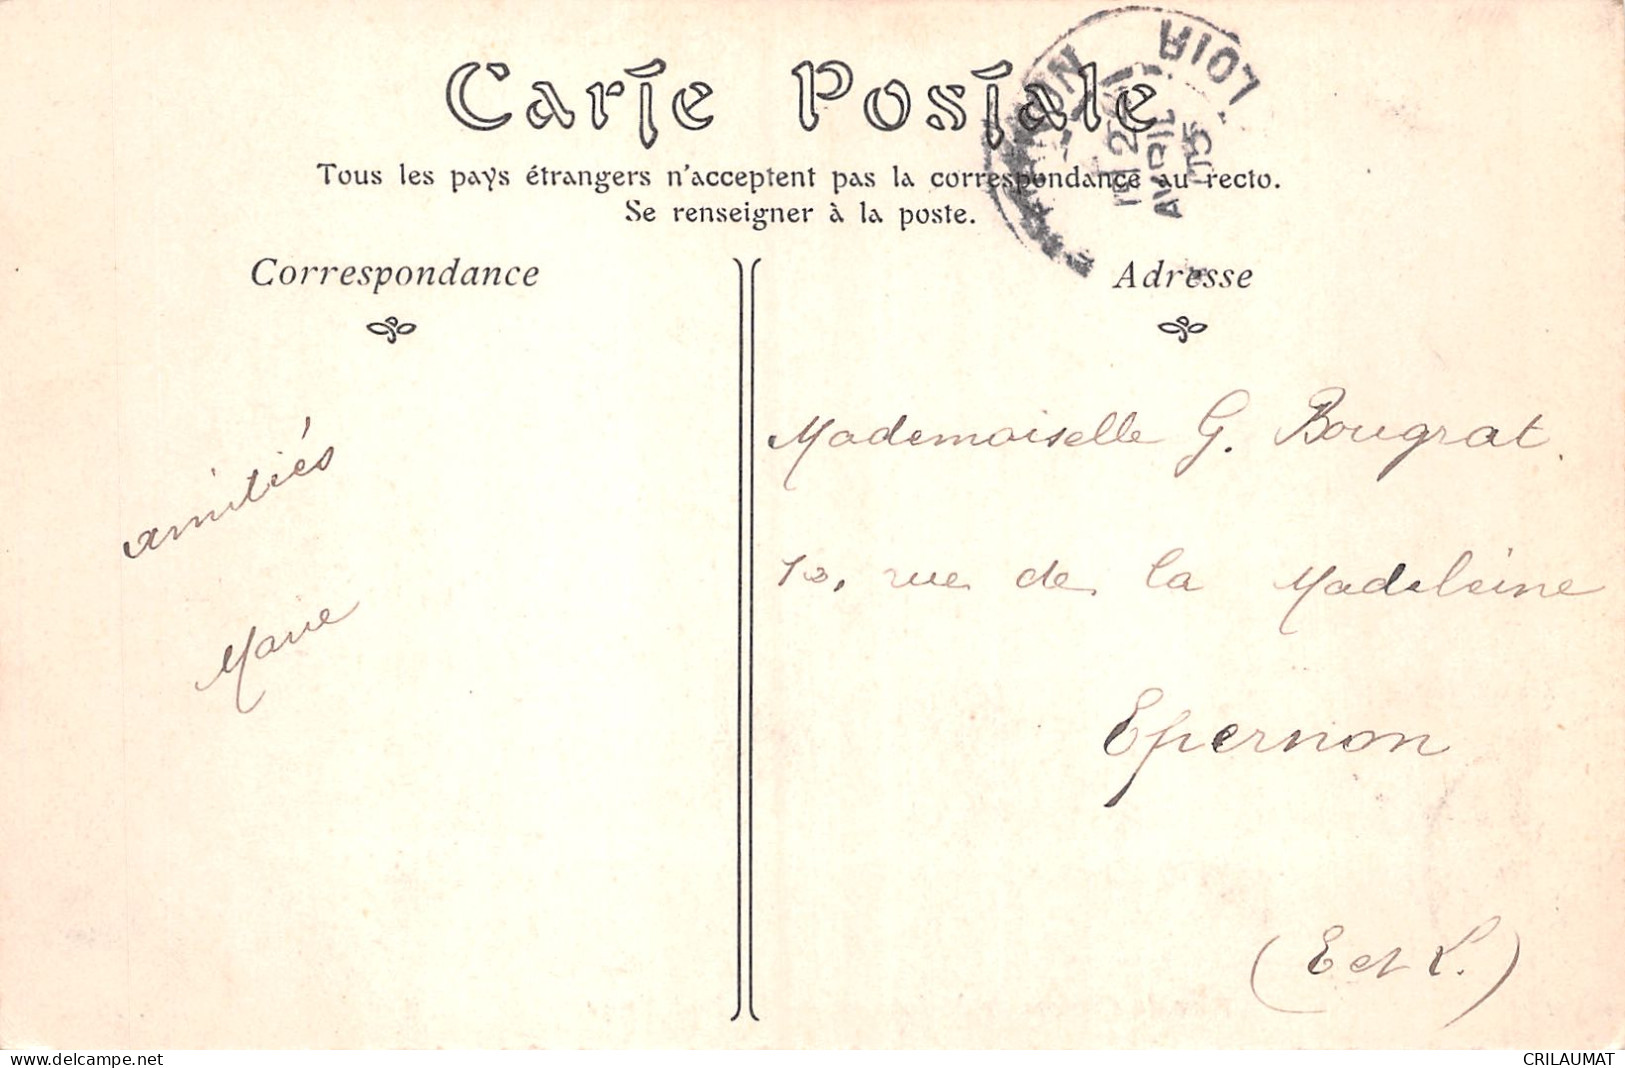 Carte Postale
Tous les pays étrangers n'acceptent pas la correspondance au recto.
Se renseigner à la poste.
Correspondance
Adresse
AVRIL
05
amitiés
Marie
Mademoiselle G. Bougrat.
rue de la Madeleine
Epernon
(E et L.)
www.delcampe.net
CRILAUMAT